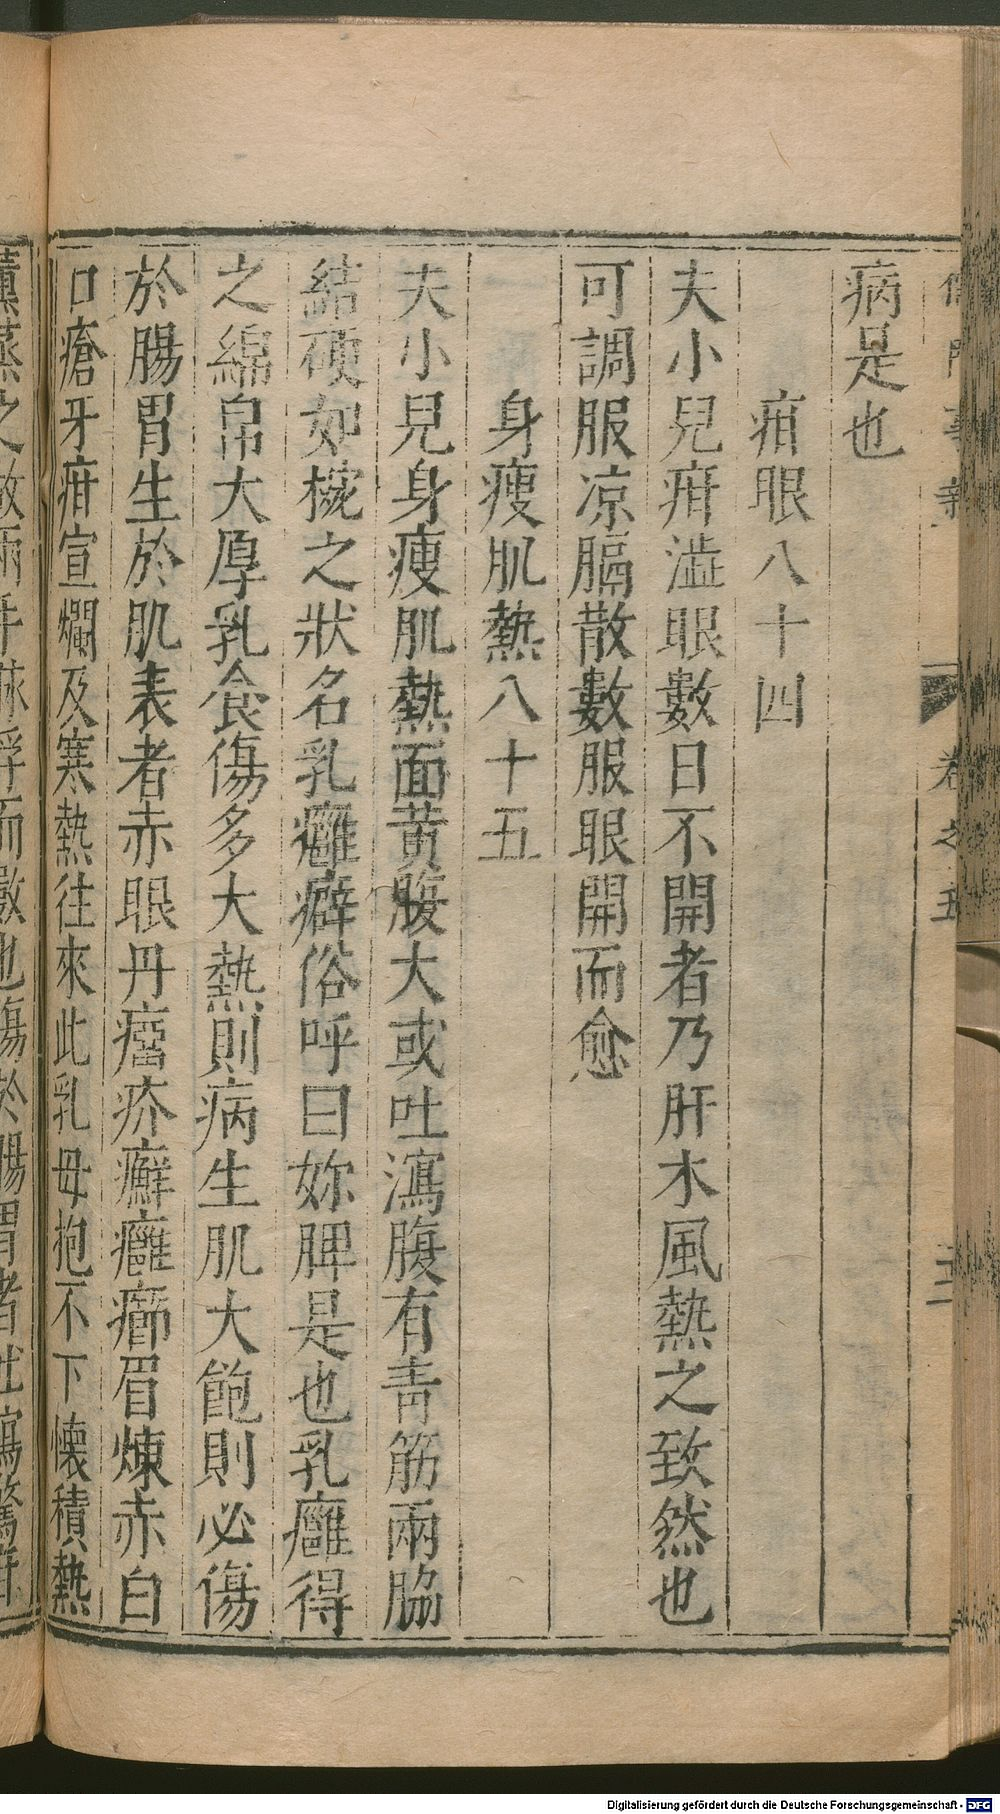 病是也
疳眼八十四
夫小兒疳澁眼數日不開者乃肝木風熱之致然也
可調服凉膈散數服眼開而愈
身瘦肌熱八十五
夫小兒身瘦肌熱面黃腹大或吐瀉腹有青筋兩脇
結硬如椀之狀名乳癰癖俗呼曰妳脾是也乳癰得
之綿帛大厚乳食傷多大熱則病生肌大飽則必傷
於腸胃生於肌表者赤眼丹瘤疥癬癰癤眉煉赤白
口瘡牙疳宣爛及寒熱往來此乳母抱不下懷積熱
熏蒸之故兩手脉浮而數也傷於腸胃者吐瀉驚疳
卷之五
Digitalisierung gefördert durch die Deutsche Forschungsgemeinschaft - DFG